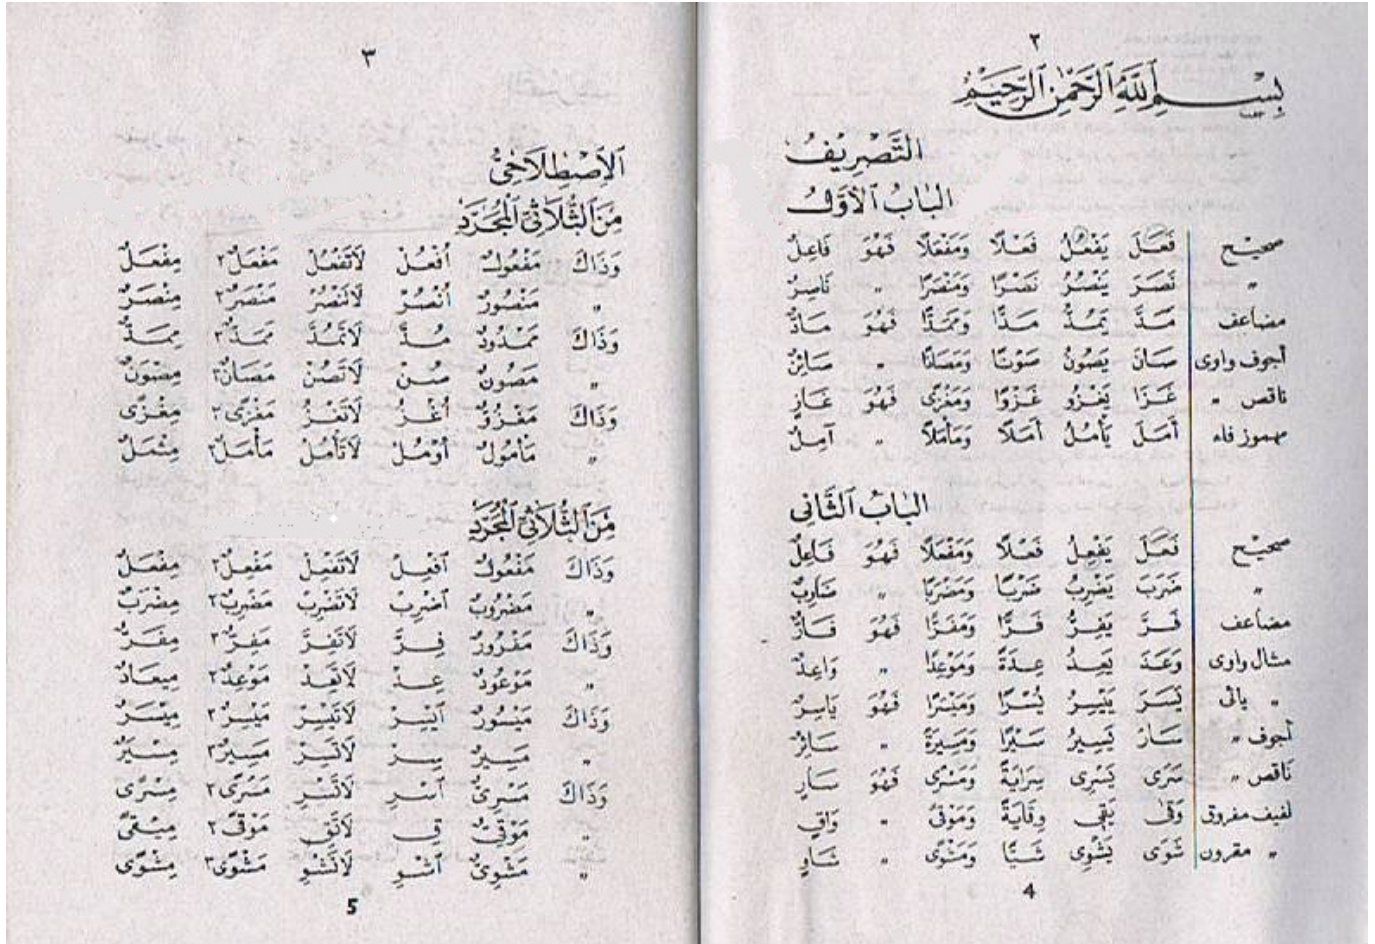 ٢
بِسْمِ اللهِ الرَّحْمٰنِ الرَّحِيْمِ
التَّصْرِيْفُ
الْبَابُ الْأَوَّلُ
صحيح فَعَلَ يَفْعُلُ فَعْلًا وَمَفْعَلًا فَهُوَ فَاعِلٌ
" نَصَرَ يَنْصُرُ نَصْرًا وَمَنْصَرًا " نَاصِرٌ
مضاعف مَدَّ يَمُدُّ مَدًّا وَمَمَدًّا فَهُوَ مَادٌّ
أجوف واوى صَانَ يَصُوْنُ صَوْنًا وَمَصَانًا " صَائِنٌ
ناقص " غَزَا يَغْزُو غَزْوًا وَمَغْزًى فَهُوَ غَازٍ
مهموز فاء أَمَلَ يَأْمُلُ أَمَلًا وَمَأْمَلًا " آمِلٌ
الْبَابُ الثَّانِى
صحيح فَعَلَ يَفْعِلُ فَعْلًا وَمَفْعَلًا فَهُوَ فَاعِلٌ
" ضَرَبَ يَضْرِبُ ضَرْبًا وَمَضْرَبًا " ضَارِبٌ
مضاعف فَرَّ يَفِرُّ فَرًّا وَمَفَرًّا فَهُوَ فَارٌّ
مثال واوى وَعَدَ يَعِدُ عِدَةً وَمَوْعِدًا " وَاعِدٌ
" يائى يَسَرَ يَيْسِرُ يُسْرًا وَمَيْسَرًا فَهُوَ يَاسِرٌ
أجوف " سَارَ يَسِيْرُ سَيْرًا وَمَسِيْرَةً " سَائِرٌ
ناقص " سَرَى يَسْرِى سِرَايَةً وَمَسْرًى فَهُوَ سَارٍ
لفيف مفروق وَقَى يَقِى وِقَايَةً وَمَوْقًى " وَاقٍ
" مقرون شَوَى يَشْوِى شَيًّا وَمَشْوًى " شَاوٍ
4
٣
اَلْاِصْطِلَاحِىُّ
مِنَ الثُّلَاثِىِّ الْمُجَرَّدِ
وَذَاكَ مَفْعُوْلٌ اُفْعُلْ لَاتَفْعُلْ مَفْعَلٌ٢ مِفْعَلٌ
" مَنْصُوْرٌ اُنْصُرْ لَاتَنْصُرْ مَنْصَرٌ٢ مِنْصَرٌ
وَذَاكَ مَمْدُوْدٌ مُدَّ لَاتَمُدَّ مَمَدٌّ٢ مِمَدٌّ
" مَصُوْنٌ صُنْ لَاتَصُنْ مَصَانٌ٢ مِصْوَنٌ
وَذَاكَ مَغْزُوٌّ اُغْزُ لَاتَغْزُ مَغْزًى٢ مِغْزًى
" مَأْمُوْلٌ اُوْمُلْ لَاتَأْمُلْ مَأْمَلٌ٢ مِئْمَلٌ
مِنَ الثُّلَاثِىِّ الْمُجَرَّدِ
وَذَاكَ مَفْعُوْلٌ اِفْعِلْ لَاتَفْعِلْ مَفْعِلٌ٢ مِفْعَلٌ
" مَضْرُوْبٌ اِضْرِبْ لَاتَضْرِبْ مَضْرِبٌ٢ مِضْرَبٌ
وَذَاكَ مَفْرُوْرٌ فِرَّ لَاتَفِرَّ مَفِرٌّ٢ مِفَرٌّ
" مَوْعُوْدٌ عِدْ لَاتَعِدْ مَوْعِدٌ٢ مِيْعَادٌ
وَذَاكَ مَيْسُوْرٌ اِيْسِرْ لَاتَيْسِرْ مَيْسِرٌ٢ مِيْسَرٌ
" مَسِيْرٌ سِرْ لَاتَسِرْ مَسِيْرٌ٢ مِسْيَرٌ
وَذَاكَ مَسْرِىٌّ اِسْرِ لَاتَسْرِ مَسْرًى٢ مِسْرًى
" مَوْقِىٌّ قِ لَاتَقِ مَوْقًى٢ مِيْقًى
" مَشْوِىٌّ اِشْوِ لَاتَشْوِ مَشْوًى٢ مِشْوًى
5